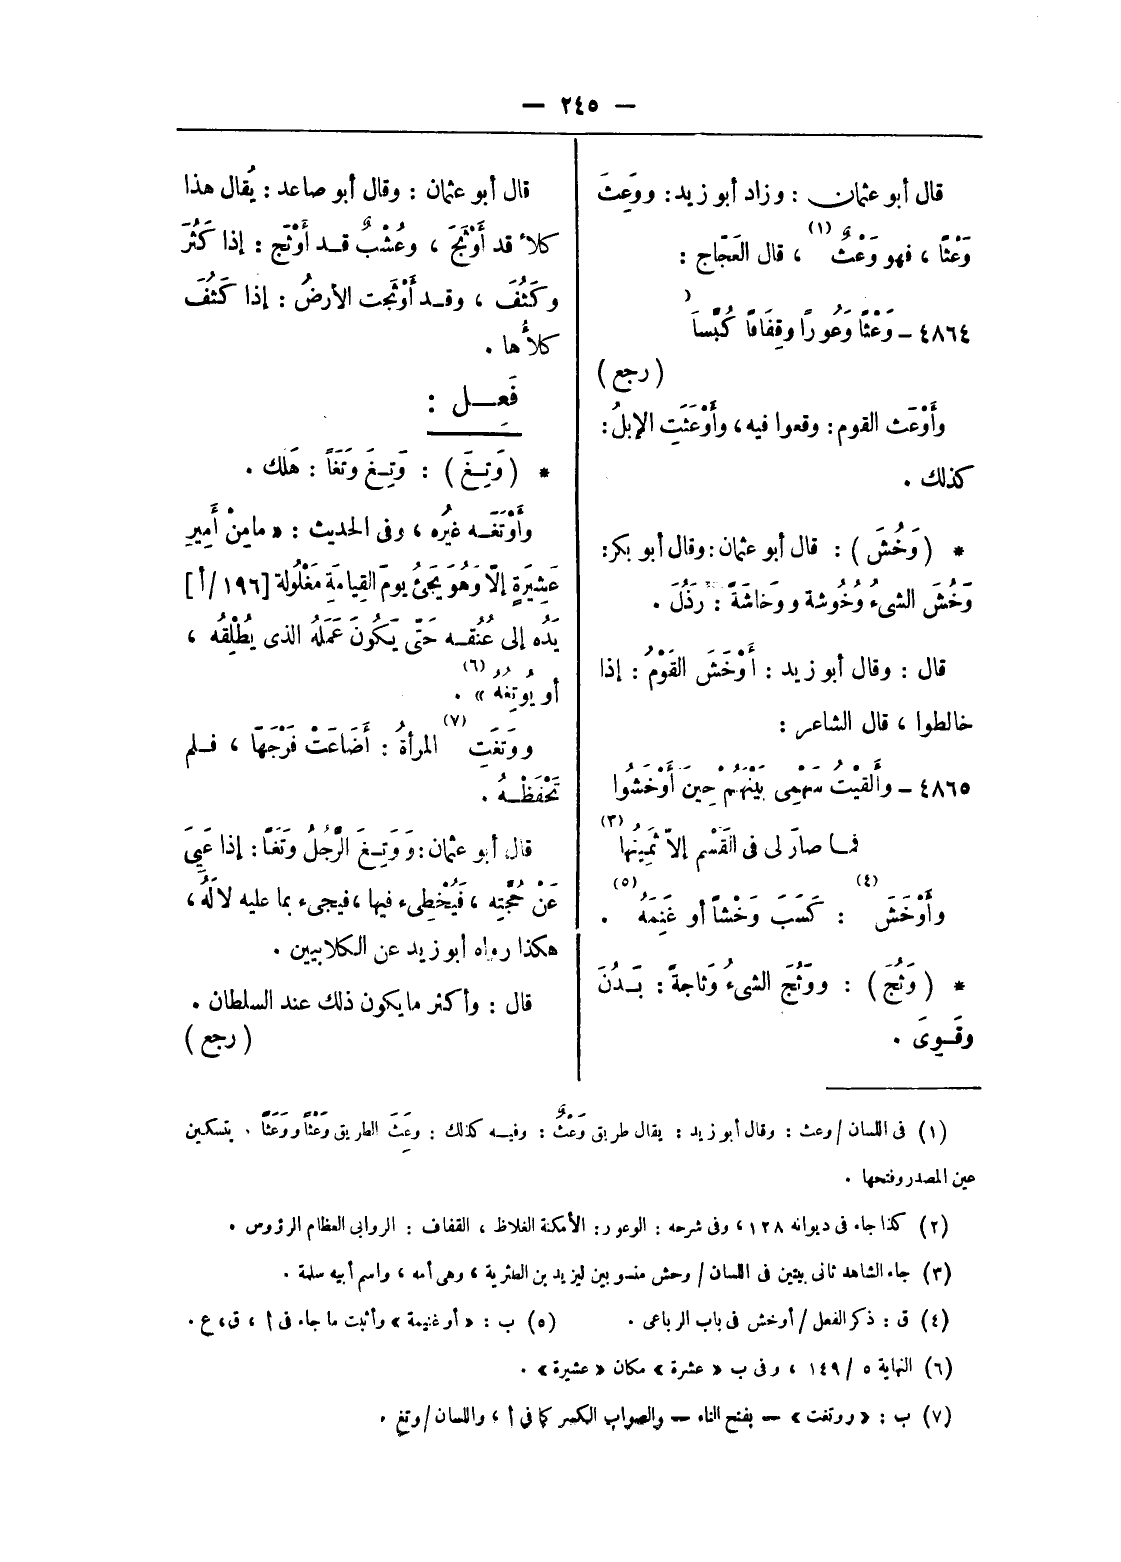 — ٢٤٥ —
قال أبو عثمان : وزاد أبو زيد : ووَعِثَ
وَعْثًا ، فهو وَعْثٌ (١) ، قال العَجّاج :
٤٨٦٤ – وَعْثًا وَعُورًا وقِفَافًا كُبَّسَا (
( رجع )
وأَوْعَث القوم : وقعوا فيه ، وأَوْعَثَتِ الإبلُ :
كذلك .
* ( وَخُشَ ) : قال أبو عثمان : وقال أبو بكر :
وَخُشَ الشىءُ وُخُوشة ووَخاشَةً : رَذُلَ .
قال : وقال أبو زيد : أَوْخَشَ القَوْمُ : إذا
خالطوا ، قال الشاعر :
٤٨٦٥ – وأَلقَيْتُ سَهْمِى بَيْنَهُمْ حِينَ أَوْخَشُوا
فمـا صارَ لى فى القَسْمِ إلاّ ثَمِينُها (٣)
وأَوْخَشَ (٤) : كَسَبَ وَخْشاً أو غَنِمَهُ (٥) .
* ( وَثُجَ ) : ووَثُجَ الشىءُ وَثاجةً : بَـدُنَ
وقَـوِىَ .
قال أبو عثمان : وقال أبو صاعد : يُقال هذا
كلأ قد أَوْثَجَ ، وعُشْبٌ قـد أَوْثَج : إذا كَثُرَ
وكَثُفَ ، وقـد أَوْثَجت الأرضُ : إذا كَثُفَ
كلأُها .
فَعِـل :
* ( وَتِـغَ ) : وَتِـغَ وَتَغَاً : هَلك .
وأَوْتَغَـه غيرُه ، وفى الحديث : « مامِنْ أَمِيرِ
عَشِيرَةٍ إلّا وَهُوَ يَجىُٔ يومَ القِيامَةِ مَغْلُولة [١٩٦/أ]
يَدُه إلى عُنُقـه حَتّى يَكُونَ عَمَلهُ الذى يُطْلِقُه ،
أو يُوتِغهُ » (٦) .
ووَتَغَتِ (٧) المرأةُ : أَضَاعَتْ فَرْجَهَا ، فـلم
تَحْفَظْـهُ .
قال أبو عثمان : وَوَتِـغَ الرَّجُلُ وَتَغَاً : إذا عَيِىَ
عَنْ حُجَّتِه ، فَيُخْطِىء فيها ، فيجىء بما عليه لالَهُ ،
هكذا رواه أبو زيد عن الكلابيين .
قال : وأكثر مايكون ذلك عند السلطان .
( رجع )
(١) فى اللسان / وعث : وقال أبو زيد : يقال طريق وَعْثٌ : وفيـه كذلك : وَعِثَ الطريق وَعْثاً ووَعَثاً . بتسكين
عين المصدر وفتحها .
(٢) كذا جاء فى ديوانه ١٢٨ ، وفى شرحه : الوعور : الأمكنة الغلاظ ، القفاف : الروابى العظام الرؤوس .
(٣) جاء الشاهد ثانى بيتين فى اللسان / وحش منسوبين ليزيد بن الطثرية ، وهى أمه ، واسم أبيه سلمة .
(٤) ق : ذكر الفعل / أوخش فى باب الرباعى . (٥) ب : « أو غنيمة » وأثبت ما جاء فى أ ، ق ، ع .
(٦) النهاية ٥ / ١٤٩ ، وفى ب « عشرة » مكان « عشيرة » .
(٧) ب : « ووتغت » – بفتح التاء – والصواب الكسر كما فى أ ، واللسان / وتغ .